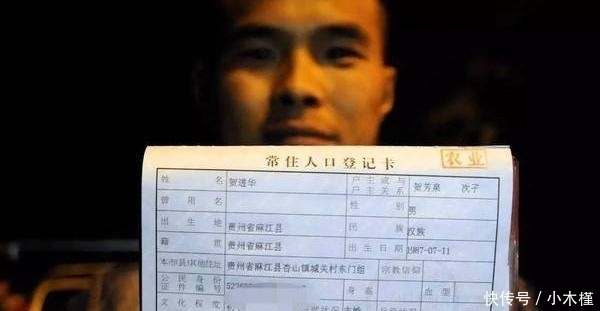 常住人口登记卡 农业
姓名 贺进华 户主或与户主关系 贺芳泉 次子
曾用名 性别 男
出生地 贵州省麻江县 民族 汉族
籍贯 贵州省麻江县 出生日期 1987-07-11
本市(县)其他住址 贵州省麻江县杏山镇城关村东门组 宗教信仰
公民身份证件编号 身高 血型
文化程度
快传号／小木槿